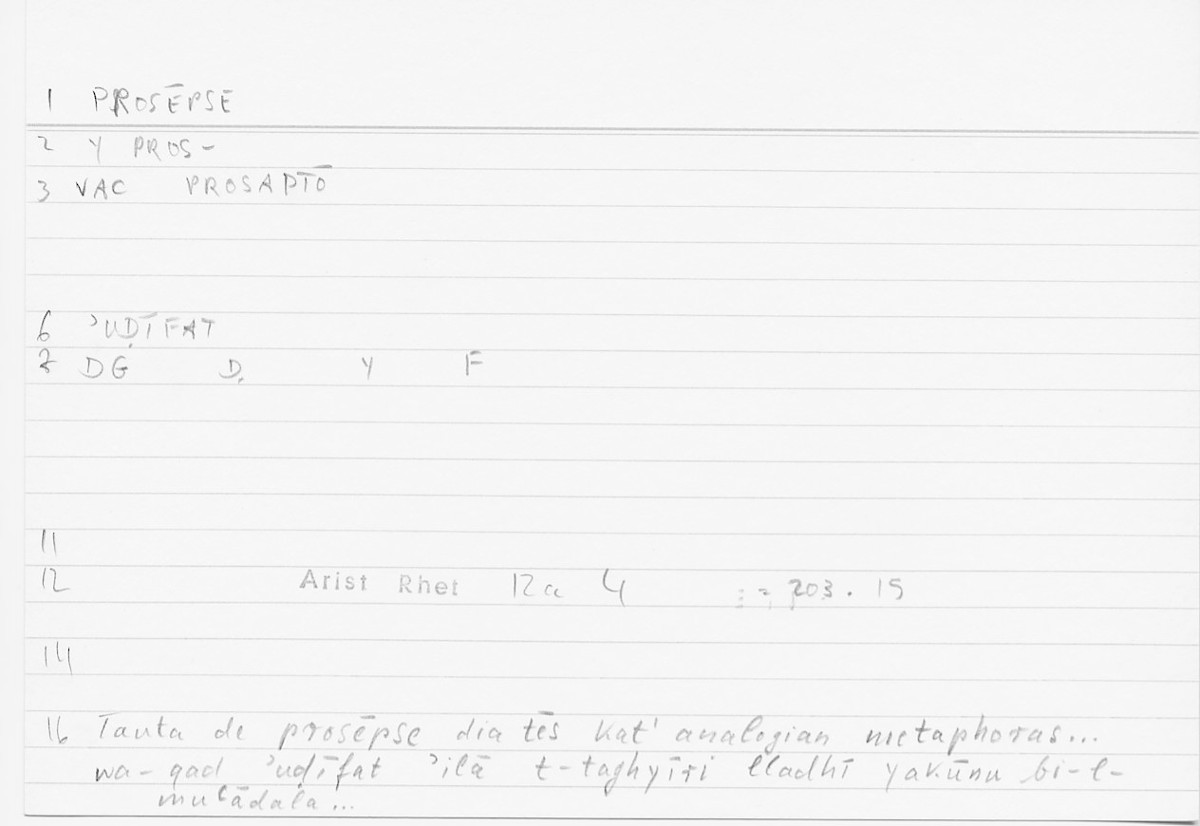 1 PROSĒPSE
2 Y PROS-
3 VAC PROSAPTŌ
6 ʾUḌĪFAT
7 DG Ḍ Y F
11
12 Arist Rhet 12a 4 = 203.15
14
16 Tauta de prosēpse dia tēs kat' analogian metaphoras...
wa-qad ʾuḍīfat ʾilā t-taghyīri lladhī yakūnu bi-l-
muʿādala...